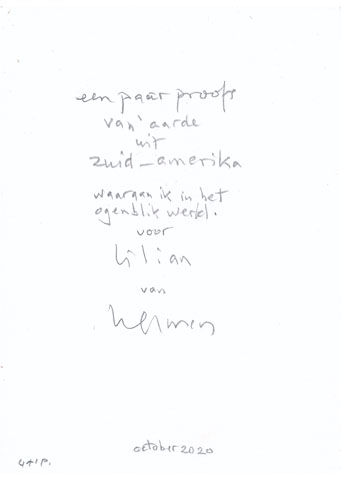 een paar proofs
van 'aarde
uit
zuid-amerika
waaraan ik in het
ogenblik werk.
voor
lilian
van
hermen
oktober 2020